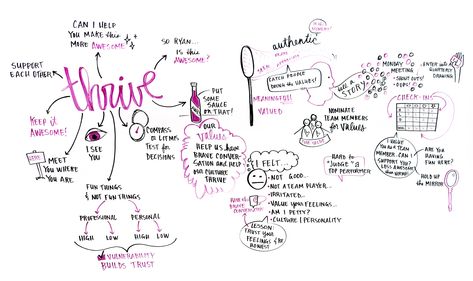 CAN I HELP
YOU MAKE THIS
MORE AWESOME
SO RYAN...
IS this
AWESOME?
SUPPORT
EACH OTHER
thrive
KEEP it
AWESOME!
MEET
YOU WHERE
YOU ARE
I SEE
YOU
COMPASS
OR LITMUS
TEST for
DECISIONS
PUT
SOME
SAUCE
ON THAT!
FUN THINGS
& NOT FUN THINGS
PROFESSIONAL
PERSONAL
HIGH LOW HIGH LOW
VULNERABILITY
BUILDS TRUST
OUR
VALUES
HELP US HAVE
BRAVE CONVER-
SATIONS AND HELP
OUR CULTURE
THRIVE
authentic
CATCH PEOPLE
DOIN the VALUES!
MEANINGFUL!
VALUED
TELL A
STORY
NOMINATE
TEAM MEMBERS
for Values
I FELT...
- NOT GOOD...
- NOT A TEAM PLAYER...
- IRRITATED...
- VALUE YOUR FEELINGS...
- AM I PETTY?
- CULTURE | PERSONALITY
HARD to
"JUDGE" a
TOP PERFORMER
LESSON:
TRUST YOUR
FEELINGS & BE
HONEST
MONDAY
MEETING
- SHOUT OUTS!
ENTER into
QUARTERLY
DRAWING
CHECK-INS
GREAT
TEAM
MEMBER. CAN I
SUPPORT YOU?
ARE YOU
HAVING
FUN HERE?
HOLD UP
the MIRROR